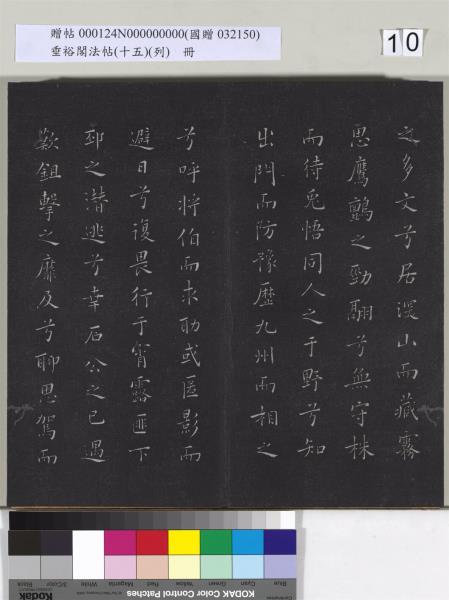 贈帖 000124N000000000(國贈 032150)
垂裕閣法帖(十五)(列) 冊
10
之多文兮居深山而藏霧
思鷹鸇之勁翮兮無守株
而待兔悟同人之于野兮知
出門而防豫歷九州而相之
兮呼將伯而求助或匿影而
避日兮復畏行于宵露匪下
邳之潛逃兮幸石公之已遇
歎鉏擊之靡及兮聊思駕而
Black
3/Color
White
Magenta
Red
Yellow
Green
Cyan
Blue
KODAK Color Control Patches